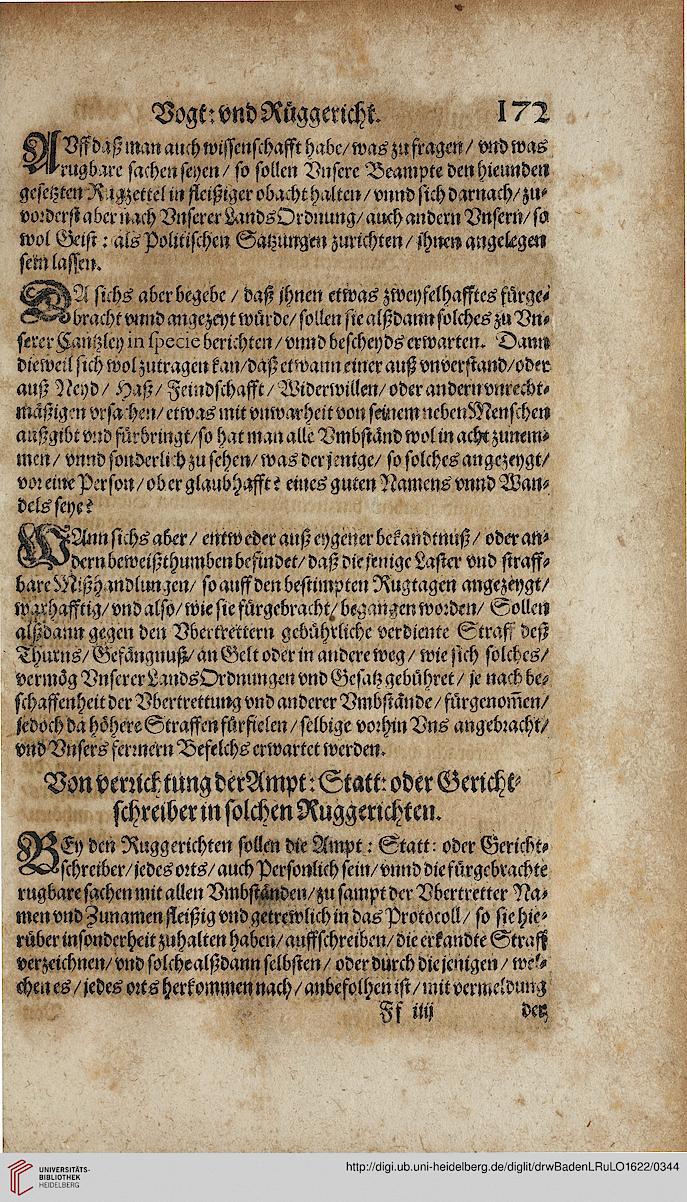 Vogt: vnd Rüggericht. 172
AVff daß man auch wissenschafft habe/ was zu fragen/ vnd was
rugbare sachen seyen/ so sollen Vnsere Beampte den hieunden
gesetzten Rugzettel in fleißiger obacht halten/ vnnd sich darnach/ zu-
vorderst aber nach Vnserer LandsOrdnung/ auch andern Vnsern/ so
wol Geist: als Politischen Satzungen zurichten/ ihnen angelegen
sein lassen.
DA sichs aber begebe/ daß ihnen etwas zweyfelhafftes fürge-
bracht vnnd angezeyt würde/ sollen sie alßdann solches zu Vn-
serer Cantzley in specie berichten/ vnnd bescheyds erwarten. Dann
dieweil sich wol zutragen kan/ daß etwann einer auß vnverstand/ oder
auß Neyd/ Haß/ Feindschafft/ Widerwillen/ oder andern vnrecht-
mäßigen vrsachen/ etwas mit vnwarheit von seinem neben Menschen
außgibt vnd fürbringt/ so hat man alle Vmbständ wol in acht zunem-
men/ vnnd sonderlich zu sehen/ was derjenige/ so solches angezeygt/
vor eine Person/ ob er glaubhafft? eines guten Namens vnnd Wan-
dels seye?
WAnn sichs aber/ entweder auß eygener bekandtnuß/ oder an-
dern beweißthumben befindet/ daß die jenige Laster vnd straff-
bare Mißhandlungen/ so auff den bestimpten Rugtagen angezeygt/
warhafftig/ vnd also/ wie sie fürgebracht/ begangen worden/ Sollen
alßdann gegen den Vbertrettern gebührliche verdiente Straff deß
Thurns/ Gefängnuß/ an Gelt oder in andere weg/ wie sich solches/
vermög Vnserer LandsOrdnungen vnd Gesatz gebühret/ je nach be-
schaffenheit der Vbertrettung vnd anderer Vmbstände/ fürgenom̃en/
jedoch da höhere Straffen fürfielen/ selbige vorhin Vns angebracht/
vnd Vnsers fermern Befelchs erwartet werden.
Von verrichtung der Ampt: Statt: oder Gericht-
schreiber in solchen Ruggerichten.
BEy den Ruggerichten sollen die Ampt: Statt: oder Gericht-
schreiber/ jedes orts/ auch Persönlich sein/ vnnd die fürgebrachte
rugbare sachen mit allen Vmbständen/ zu sampt der Vbertretter Na-
men vnd Zunamen fleißig vnd getrewlich in das Protocoll/ so sie hie-
rüber insonderheit zuhalten haben/ auffschreiben/ die erkandte Straff
verzeichnen/ vnd solche alßdann selbsten/ oder durch die jenigen/ wel-
chen es/ jedes orts herkommen nach/ anbefolhen ist/ mit vermeldung
Ff iiij der
UNIVERSITÄTS-
BIBLIOTHEK
HEIDELBERG
http://digi.ub.uni-heidelberg.de/diglit/drwBadenLRuLO1622/0344